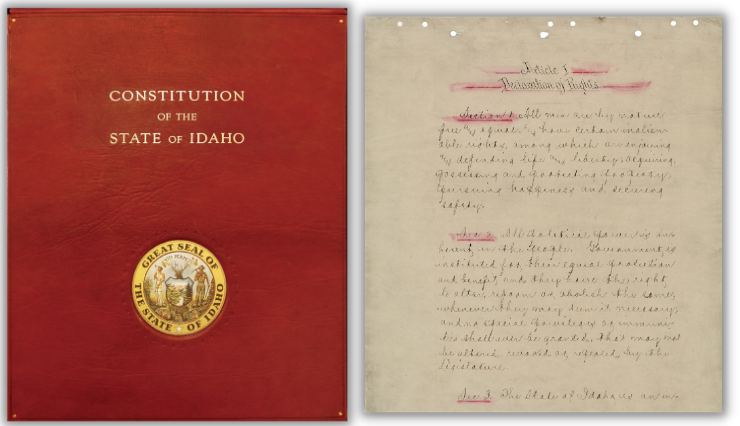 CONSTITUTION
OF THE
STATE OF IDAHO
GREAT SEAL OF
THE STATE OF IDAHO
Article I
Declaration of Rights
Section 1. All men are by nature
free and equal, and have certain inalien-
able rights, among which are enjoying
and defending life and liberty; acquiring,
possessing and protecting property;
pursuing happiness and securing
safety.
Sec. 2. All political power is in-
herent in the people. Government is
instituted for their equal protection
and benefit, and they have the right
to alter, reform or abolish the same,
whenever they may deem it necessary,
and no special privileges or immuni-
ties shall ever be granted, that may not
be altered, revoked or repealed by the
Legislature.
Sec. 3. The State of Idaho is an in-